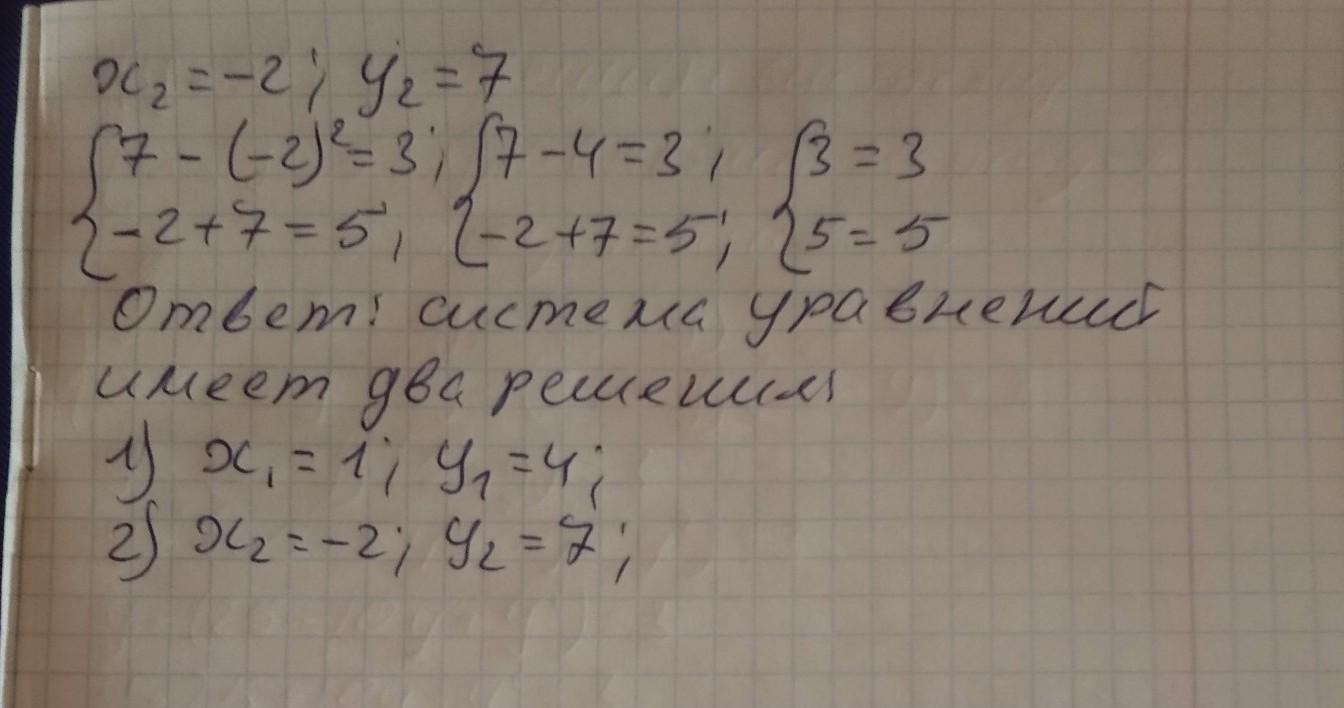 x₂ = -2; y₂ = 7
{7 - (-2)² = 3; {7 - 4 = 3; {3 = 3
{-2 + 7 = 5; {-2 + 7 = 5; {5 = 5
Ответ: система уравнений
имеет два решения:
1) x₁ = 1; y₁ = 4;
2) x₂ = -2; y₂ = 7;